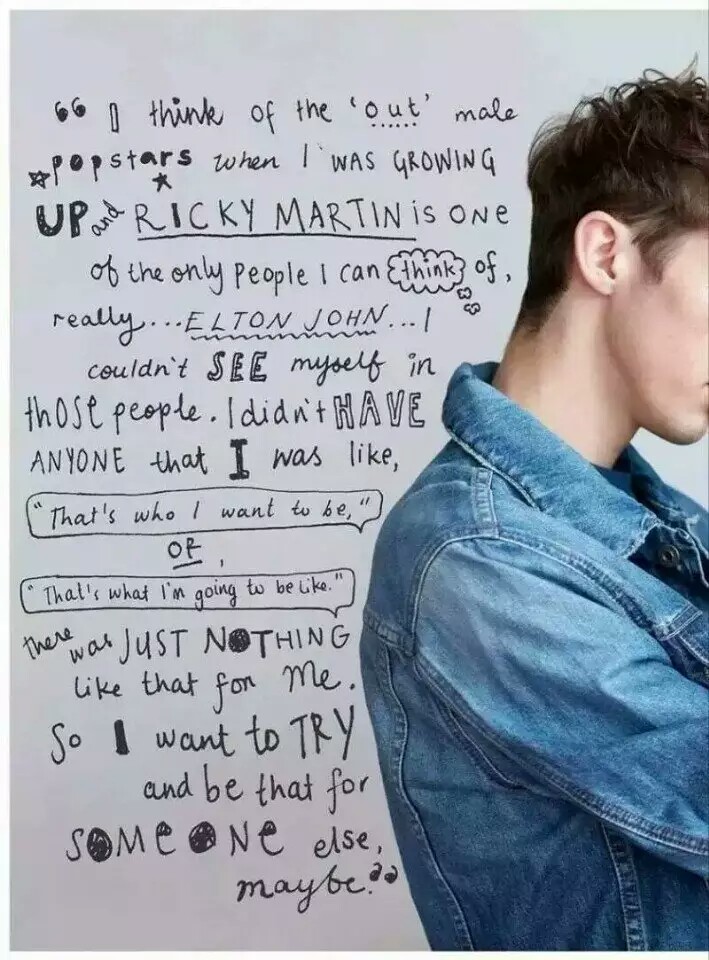 “I think of the ‘out’ male
popstars when I was GROWING
UP and RICKY MARTIN is ONE
of the only people I can think of,
really...ELTON JOHN...I
couldn't SEE myself in
thOSE people. I didn't HAVE
ANYONE that I was like,
"That's who I want to be,"
OR,
"That's what I'm going to be like."
there was JUST NOTHING
like that for me.
So I want to TRY
and be that for
SOMEONE else,
maybe.”